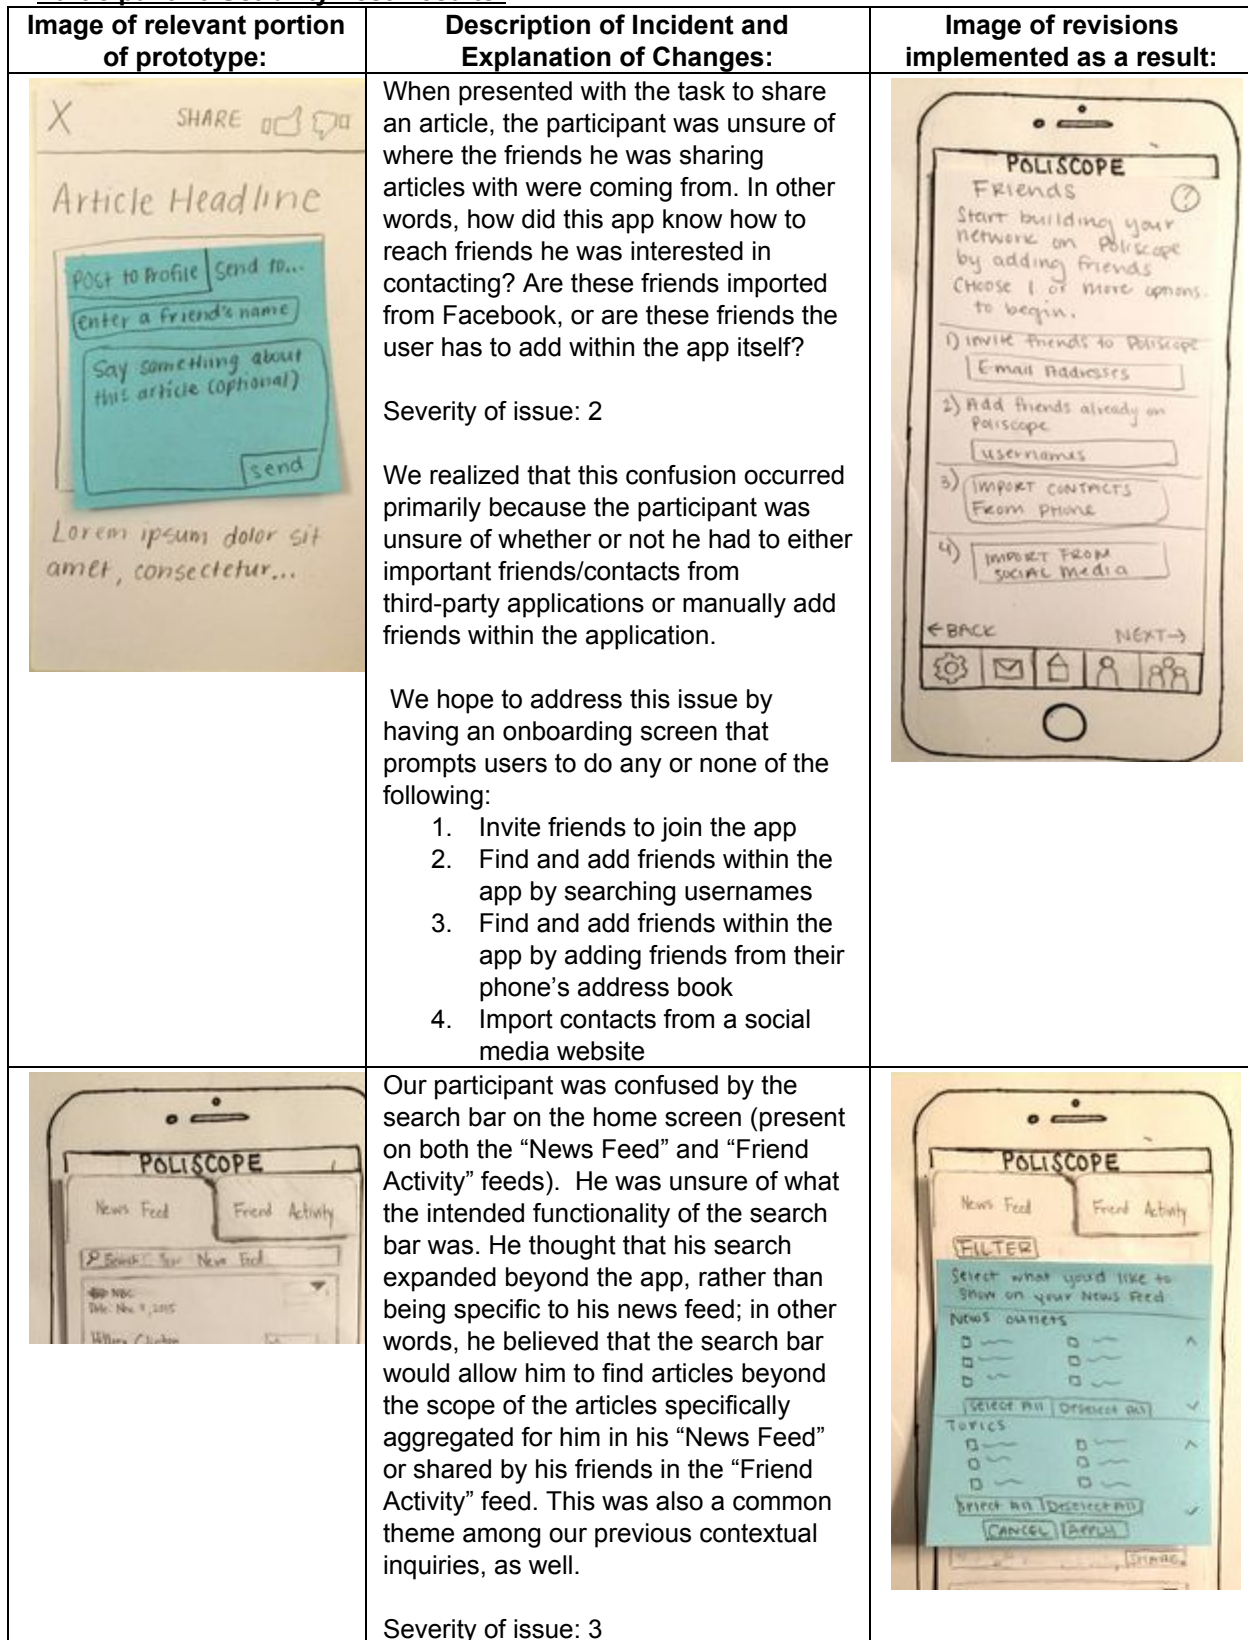 Image of relevant portion
of prototype:
Description of Incident and
Explanation of Changes:
Image of revisions
implemented as a result:
X SHARE
Article Headline
Post to Profile Send to...
enter a friend's name
Say something about
this article (optional)
send
Lorem ipsum dolor sit
amet, consectetur...
When presented with the task to share
an article, the participant was unsure of
where the friends he was sharing
articles with were coming from. In other
words, how did this app know how to
reach friends he was interested in
contacting? Are these friends imported
from Facebook, or are these friends the
user has to add within the app itself?
Severity of issue: 2
We realized that this confusion occurred
primarily because the participant was
unsure of whether or not he had to either
important friends/contacts from
third-party applications or manually add
friends within the application.
We hope to address this issue by
having an onboarding screen that
prompts users to do any or none of the
following:
1. Invite friends to join the app
2. Find and add friends within the
app by searching usernames
3. Find and add friends within the
app by adding friends from their
phone's address book
4. Import contacts from a social
media website
POLISCOPE
Friends ?
Start building your
network on Poliscope
by adding friends
Choose 1 or more options
to begin.
1) Invite friends to Poliscope
E-mail Addresses
2) Add friends already on
Poliscope
usernames
3) IMPORT CONTACTS
From PHONE
4) IMPORT FROM
SOCIAL media
←BACK NEXT→
POLISCOPE
News Feed Friend Activity
Search Your News Feed
NBC
Date: Nov. 9, 2015
Hillary Clinton
Our participant was confused by the
search bar on the home screen (present
on both the “News Feed” and “Friend
Activity” feeds). He was unsure of what
the intended functionality of the search
bar was. He thought that his search
expanded beyond the app, rather than
being specific to his news feed; in other
words, he believed that the search bar
would allow him to find articles beyond
the scope of the articles specifically
aggregated for him in his “News Feed”
or shared by his friends in the “Friend
Activity” feed. This was also a common
theme among our previous contextual
inquiries, as well.
Severity of issue: 3
POLISCOPE
News Feed Friend Activity
FILTER
Select what you'd like to
show on your News Feed
News outlets
Select All Deselect All
Topics
Select All Deselect All
CANCEL APPLY
SHARE